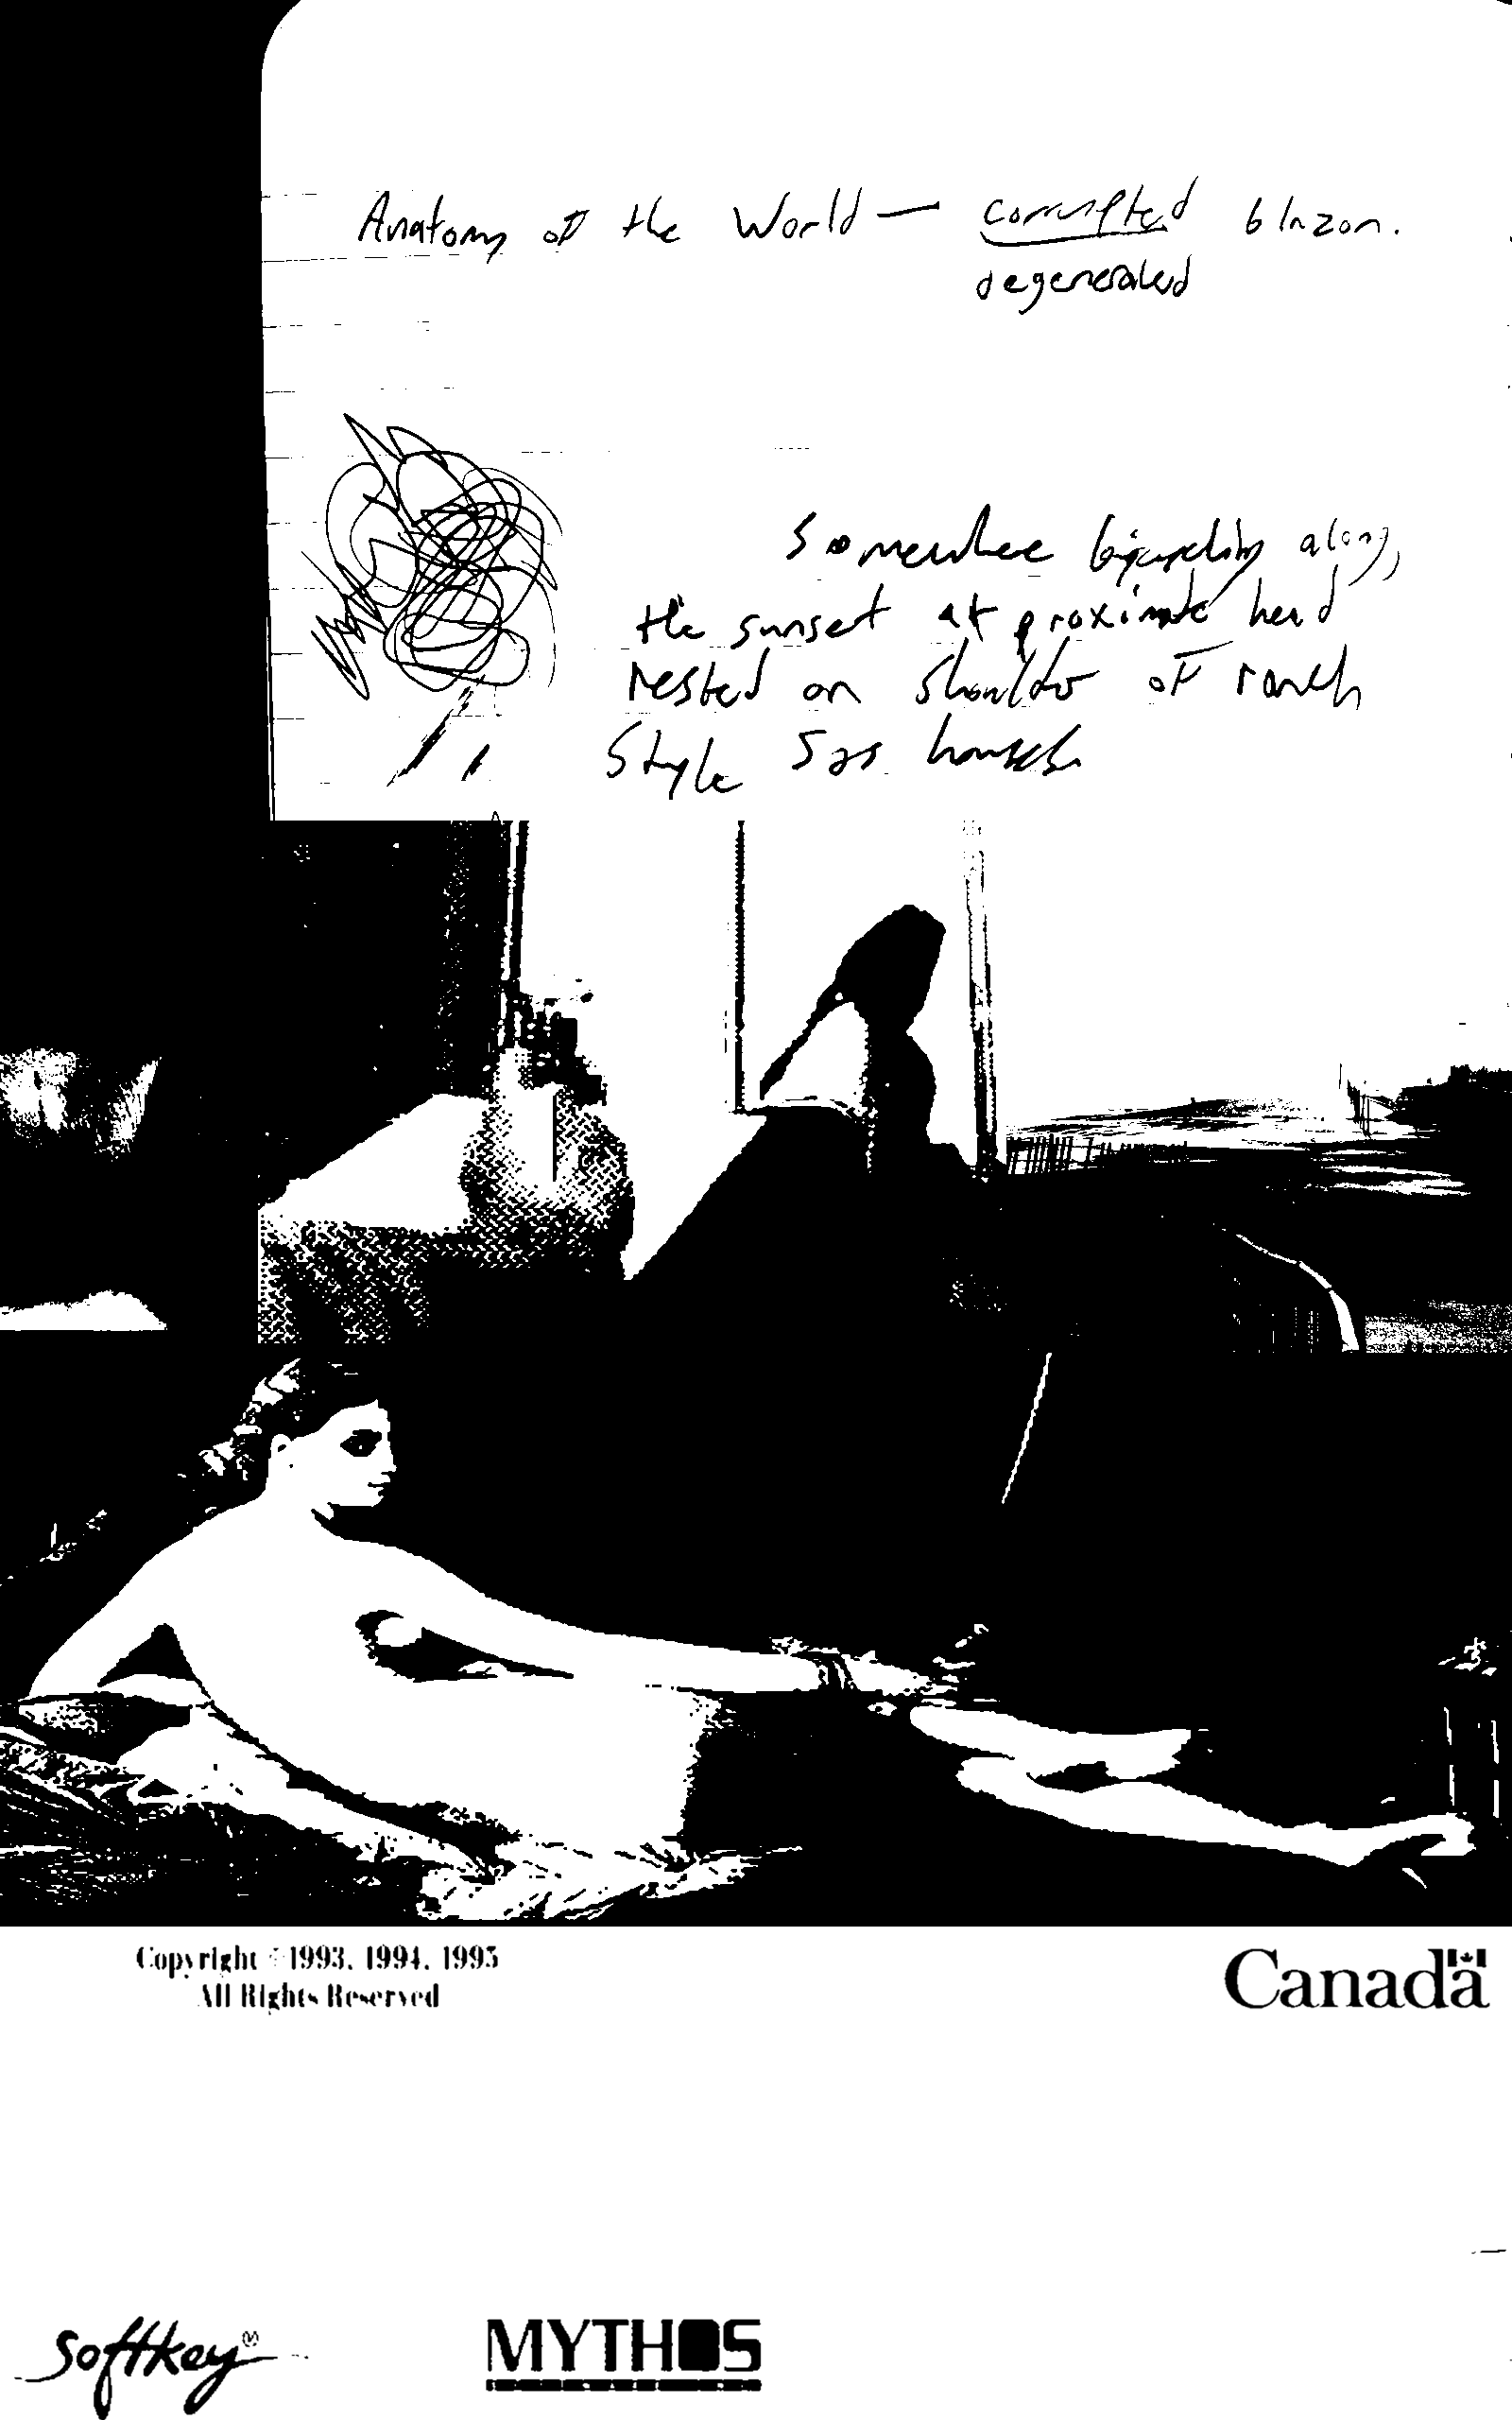 Anatomy of the World — corrupted blazon.
degenerated
Somewhere along,
the sunset at proximate head
rested on shoulder of ranch
Style
Copyright ©1993, 1994, 1995
All Rights Reserved
Canada
Softkey
MYTHOS